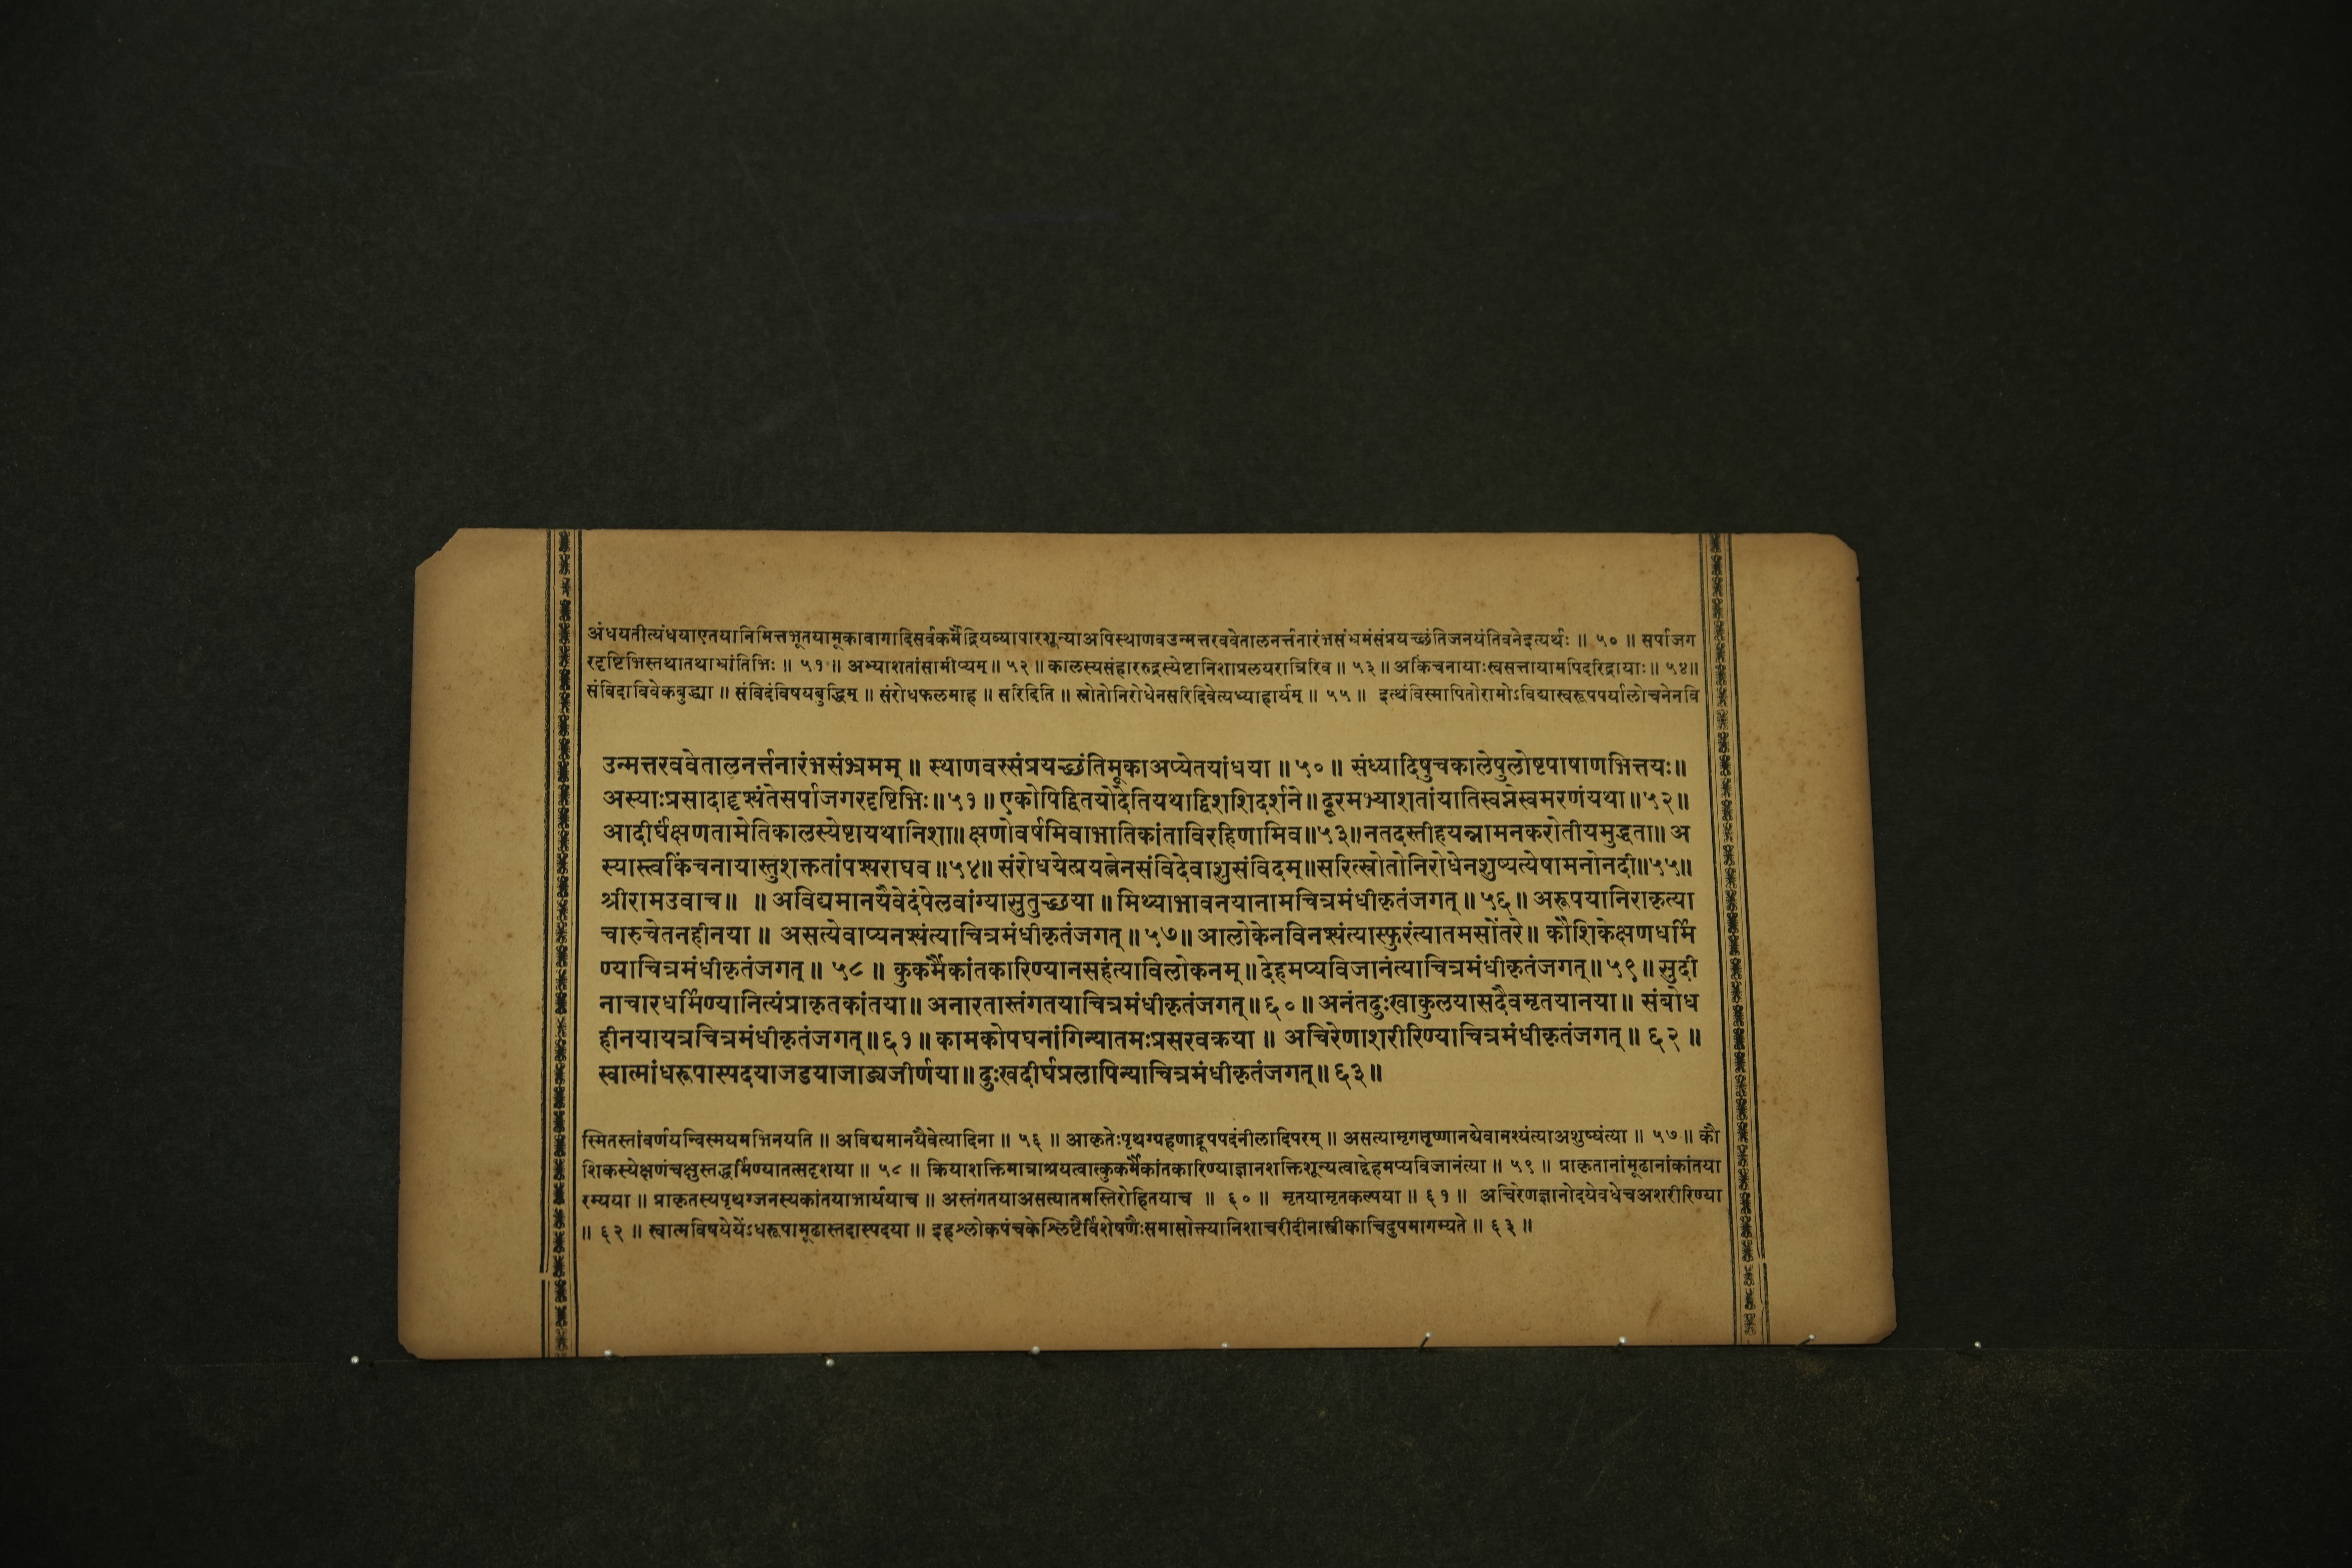 अंधयतीत्यंधयाएतयानिमित्तभूतयामूकावागादिसर्वकर्मेंद्रियव्यापारशून्याअपिस्थाणवउन्मत्तरववेतालनर्त्तनारंभसंभ्रमंसंप्रयच्छंतिजनयंतिवनेइत्यर्थः ॥ ५० ॥ सर्पाजग
रदृष्टिभिस्तथातथाभ्रांतिभिः ॥ ५१ ॥ अभ्याशतांसामीप्यम् ॥ ५२ ॥ कालस्यसंहाररुद्रस्येष्टानिशाप्रलयरात्रिरिव ॥ ५३ ॥ अकिंचनायाःस्वसत्तायामपिदरिद्रायाः ॥ ५४ ॥
संविदाविवेकबुद्ध्या ॥ संविदंविषयबुद्धिम् ॥ संरोधफलमाह ॥ सरिदिति ॥ स्रोतोनिरोधेनसरिदिवेत्यध्याहार्यम् ॥ ५५ ॥ इत्थंविस्मापितोरामोऽविद्यास्वरूपपर्यालोचनेनवि
उन्मत्तरववेतालनर्त्तनारंभसंभ्रमम् ॥ स्थाणवस्संप्रयच्छंतिमूकाअप्येतयांधया ॥ ५० ॥ संध्यादिषुचकालेषुलोष्टपाषाणभित्तयः ॥
अस्याःप्रसादादृश्यंतेसर्पाजगरदृष्टिभिः ॥ ५१ ॥ एकोपिद्वितयोदेतियथाद्विशशिदर्शने ॥ दूरमभ्याशतांयातिस्वप्नेस्वमरणंयथा ॥ ५२ ॥
आदीर्घंक्षणतामेतिकालस्येष्टायथानिशा ॥ क्षणोवर्षमिवाभातिकांताविरहिणामिव ॥ ५३ ॥ नतदस्तीहयन्नामनकरोतीयमुद्धता ॥ अ
स्यास्त्वकिंचनायास्तुशक्ततांपश्यराघव ॥ ५४ ॥ संरोधयेत्प्रयत्नेनसंविदेवाशुसंविदम् ॥ सरित्स्रोतोनिरोधेनशुष्यत्येषामनोनदी ॥ ५५ ॥
श्रीरामउवाच ॥ ॥ अविद्यमानयैवेदंपेलवांग्यासुतुच्छया ॥ मिथ्याभावनयानामचित्रमंधीकृतंजगत् ॥ ५६ ॥ अरूपयानिराकृत्या
चारुचेतनहीनया ॥ असत्येवाप्यनश्यंत्याचित्रमंधीकृतंजगत् ॥ ५७ ॥ आलोकेनविनश्यंत्यास्फुरंत्यातमसोंतरे ॥ कौशिकेक्षणधर्मि
ण्याचित्रमंधीकृतंजगत् ॥ ५८ ॥ कुकर्मैकांतकारिण्यानसहंत्याविलोकनम् ॥ देहमप्यविजानंत्याचित्रमंधीकृतंजगत् ॥ ५९ ॥ सुदी
नाचारधर्मिण्यानित्यंप्राकृतकांतया ॥ अनारतास्तंगतयाचित्रमंधीकृतंजगत् ॥ ६० ॥ अनंतदुःखाकुलयासदैवमृतयानया ॥ संबोध
हीनयायत्रचित्रमंधीकृतंजगत् ॥ ६१ ॥ कामकोपघनांगिन्यातमःप्रसरवक्रया ॥ अचिरेणाशरीरिण्याचित्रमंधीकृतंजगत् ॥ ६२ ॥
स्वात्मांधरूपास्पदयाजडयाजाड्यजीर्णया ॥ दुःखदीर्घप्रलापिन्याचित्रमंधीकृतंजगत् ॥ ६३ ॥
स्मितस्तांवर्णयन्विस्मयमभिनयति ॥ अविद्यमानयैवेत्यादिना ॥ ५६ ॥ आकृतेःपृथग्ग्रहणाद्रूपपदंनीलादिपरम् ॥ असत्यामृगतृष्णानद्येवानश्यंत्याअशुष्यंत्या ॥ ५७ ॥ कौ
शिकस्येक्षणंचक्षुस्तद्धर्मिण्यातत्सदृशया ॥ ५८ ॥ क्रियाशक्तिमात्राश्रयत्वात्कुकर्मैकांतकारिण्याज्ञानशक्तिशून्यत्वाद्देहमप्यविजानंत्या ॥ ५९ ॥ प्राकृतानांमूढानांकांतया
रम्यया ॥ प्राकृतस्यपृथग्जनस्यकांतयाभार्ययाच ॥ अस्तंगतयाअसत्यातमस्तिरोहितयाच ॥ ६० ॥ मृतयामृतकल्पया ॥ ६१ ॥ अचिरेणज्ञानोदयेवधेचअशरीरिण्या
॥ ६२ ॥ स्वात्मविषयेयेंऽधरूपामूढास्तदास्पदया ॥ इहश्लोकपंचकेश्लिष्टैर्विशेषणैःसमासोक्त्यानिशाचरीदीनास्त्रीकाचिदुपमागम्यते ॥ ६३ ॥